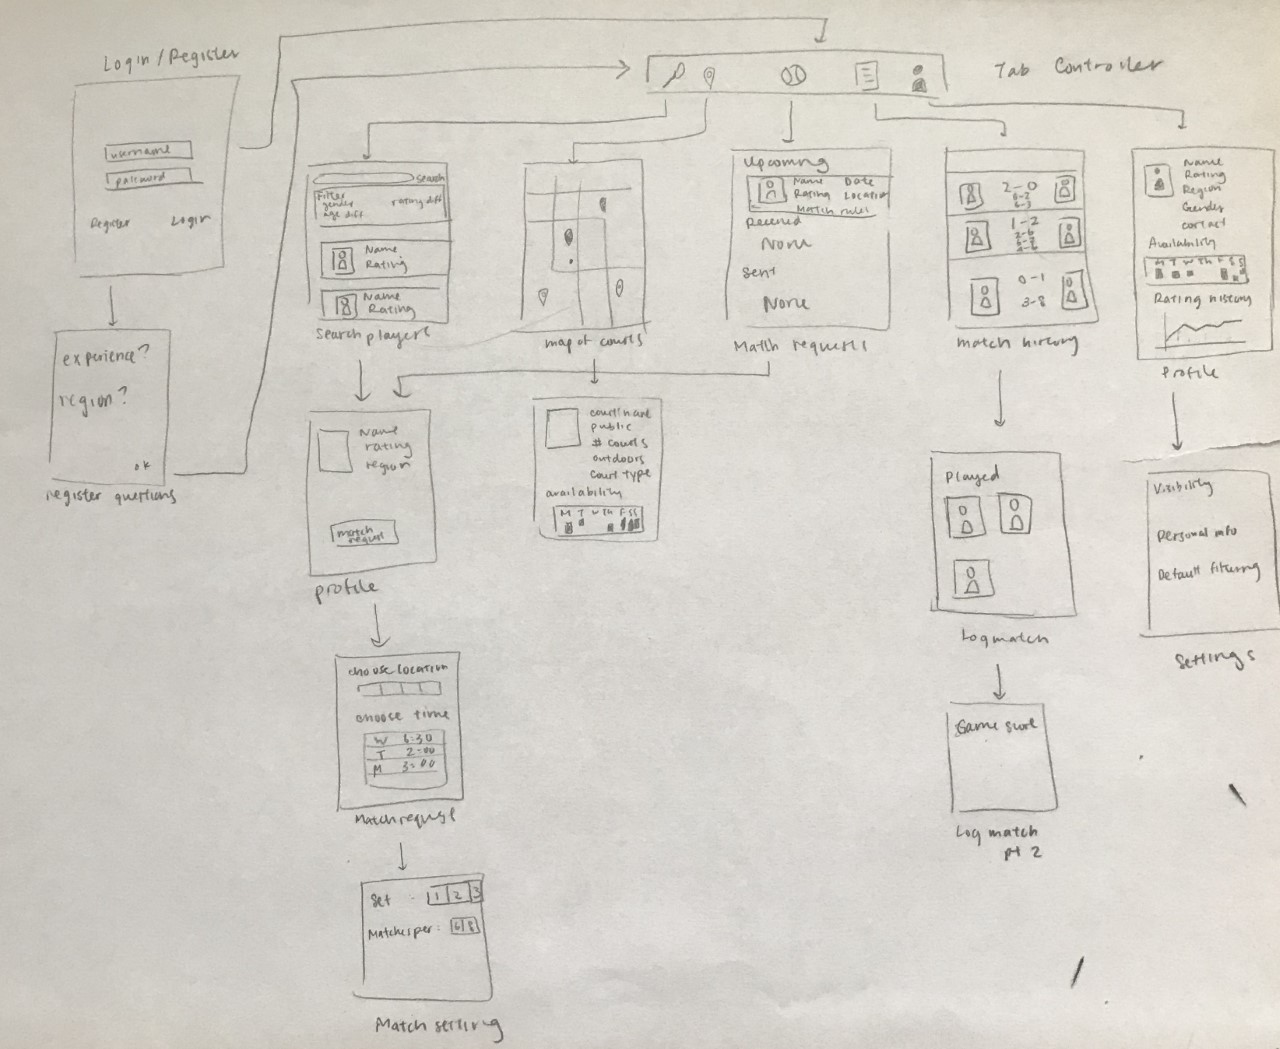 Login/Register
username
password
Register Login
experience?
region?
ok
register questions
Tab Controller
Search
Filter
gender
age diff
rating diff
Name
Rating
Name
Rating
Search players
map of courts
Upcoming
Name Date
Rating Location
Match rules
Received
None
Sent
None
Match requests
2-0
6-2
6-3
1-2
2-6
0-1
3-8
match history
Name
Rating
Region
Gender
contact
Availability
M T W Th F S S
Rating history
Profile
Name
rating
region
match
request
profile
court name
public
# courts
outdoors
court type
availability
M T W Th F S S
Played
Log match
Visibility
Personal info
Default filtering
Settings
choose location
choose time
W 6:30
T 2:00
M 3:00
Match request
Game score
Log match
pt 2
Set : 1 2 3
Matches per: 6 8
Match setting